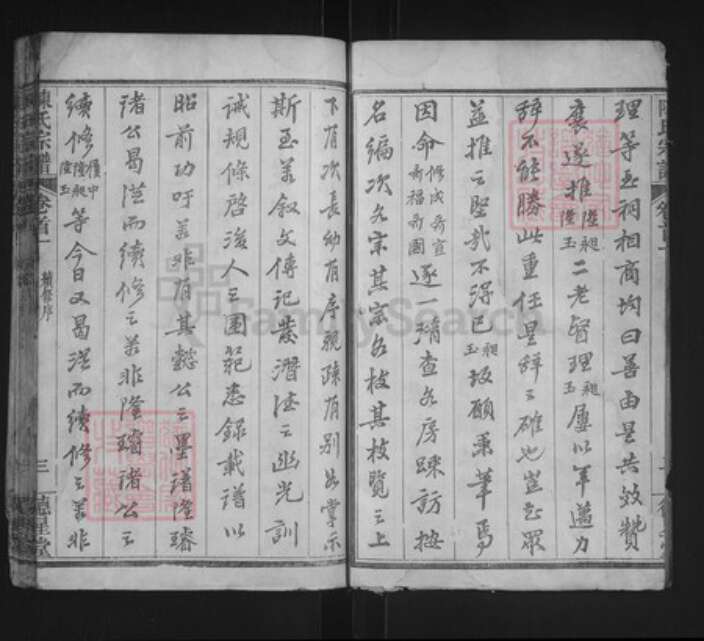 理等至祠相商均曰善由是共效贊
襄遂推陞昶陞玉二老督理昶玉屢以年邁力
辞不能勝此重任是辞之確也豈知眾
益推之堅哉不得已昶玉故願秉筆焉
因命修成希宣希福希圖逐一稽查各房踩訪按
名編次各宗其宗各枝其枝覽之上
下有次長幼有序親疎有別如掌示
斯至若敘文傳記發潛德之幽光訓
誡規條啓後人之圍範悉錄載譜以
昭前功吁若非有其懿公之墨譜隆璿
諸公曷從而續修之若非隆璿諸公之
續修陞昶陞玉等今日又曷從而續修之若非
陳氏宗譜
卷首一
續修序
三
德星堂
FamilySearch